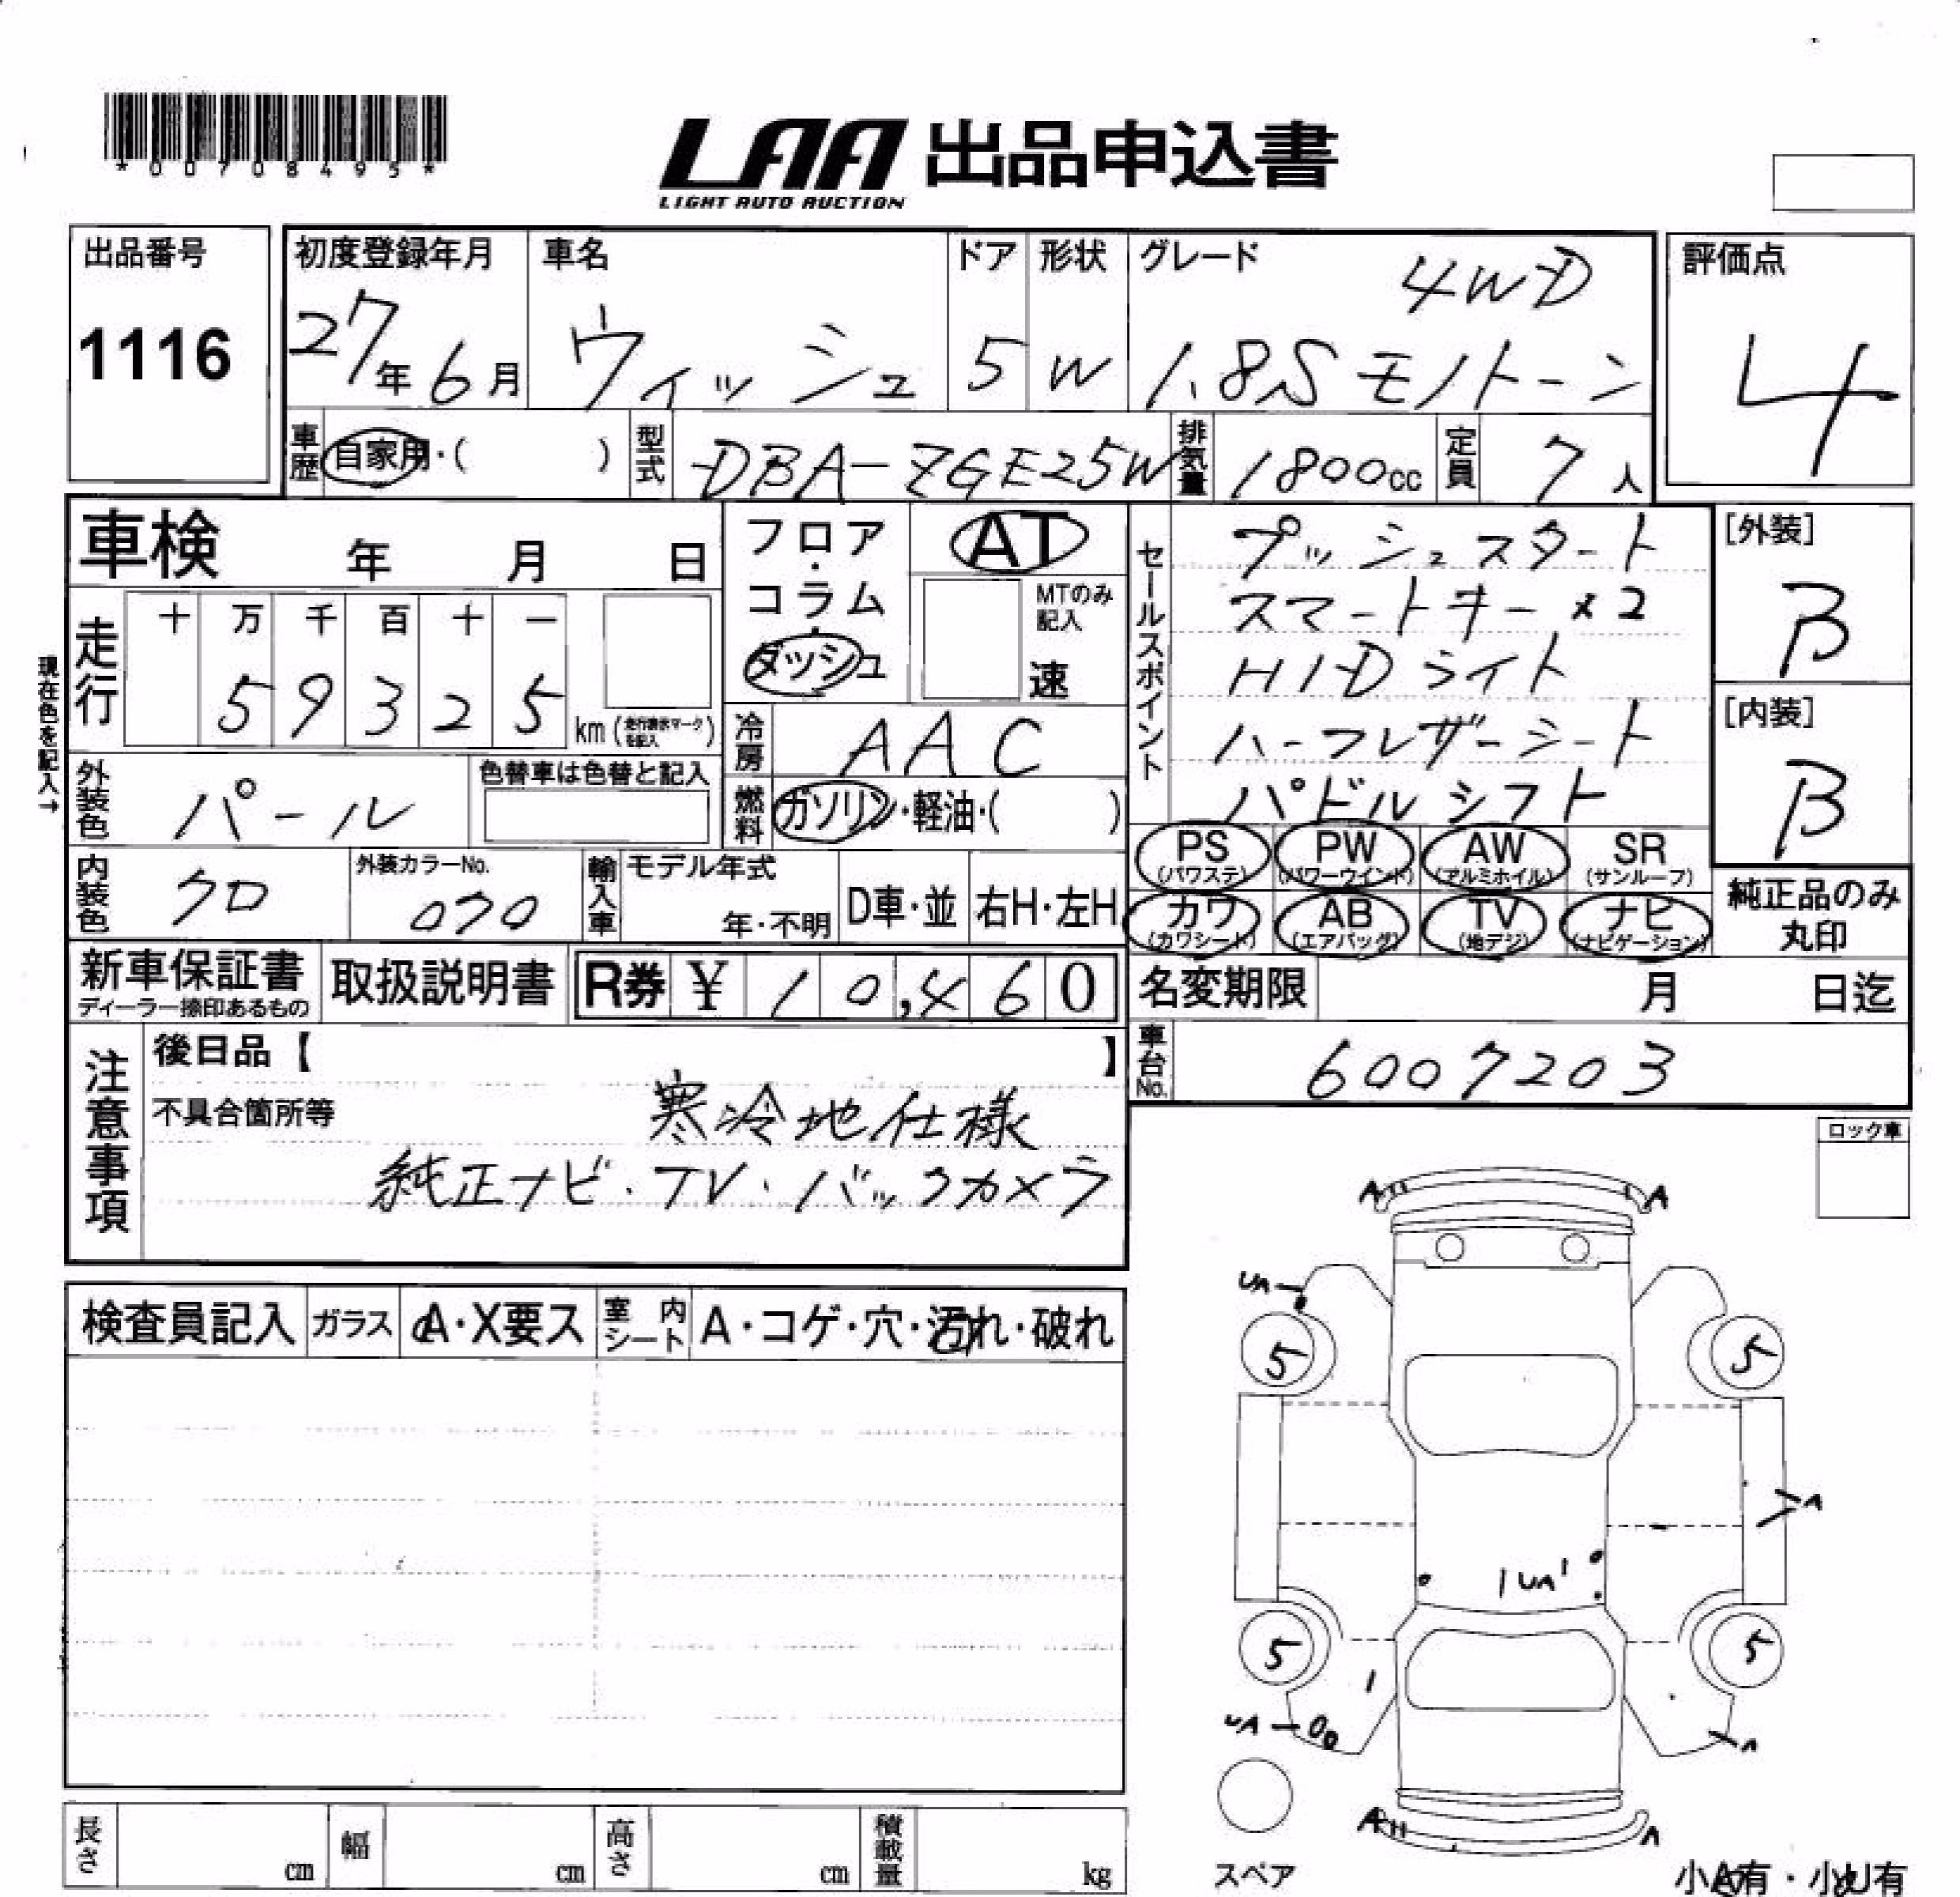 *00708495*
LAA 出品申込書
LIGHT AUTO AUCTION
出品番号
1116
初度登録年月
27年6月
車名
ウィッシュ
ドア
5
形状
W
グレード
4WD
1.8S モノトーン
評価点
4
車歴 自家用・( )
型式 DBA-ZGE25W
排気量 1800cc
定員 7人
車検 年 月 日
フロア・コラム・ダッシュ
AT
MTのみ記入
速
セールスポイント
プッシュスタート
スマートキー×2
HIDライト
ハーフレザーシート
パドルシフト
[外装]
B
[内装]
B
現在色を記入→
走行
十 万 千 百 十 一
5 9 3 2 5
km (走行表示マークを記入)
冷房 AAC
外装色 パール
色替車は色替と記入
燃料 ガソリン・軽油・( )
PS (パワステ) PW (パワーウインド) AW (アルミホイル) SR (サンルーフ)
カワ (カワシート) AB (エアバッグ) TV (地デジ) ナビ (ナビゲーション)
純正品のみ丸印
内装色 クロ
外装カラーNo. 070
輸入車
モデル年式
年・不明
D車・並
右H・左H
新車保証書
ディーラー捺印あるもの
取扱説明書
R券 ¥ 10,460
名変期限 月 日迄
車台No. 6007203
注意事項
後日品【 】
不具合箇所等
寒冷地仕様
純正ナビ・TV・バックカメラ
ロック車
検査員記入 ガラス A・X要ス 室内シート A・コゲ・穴・汚れ・破れ
A A
UA
5 5
A
UA
5 5
UA
A
A A
スペア
小A有・小U有
長さ cm 幅 cm 高さ cm 積載量 kg